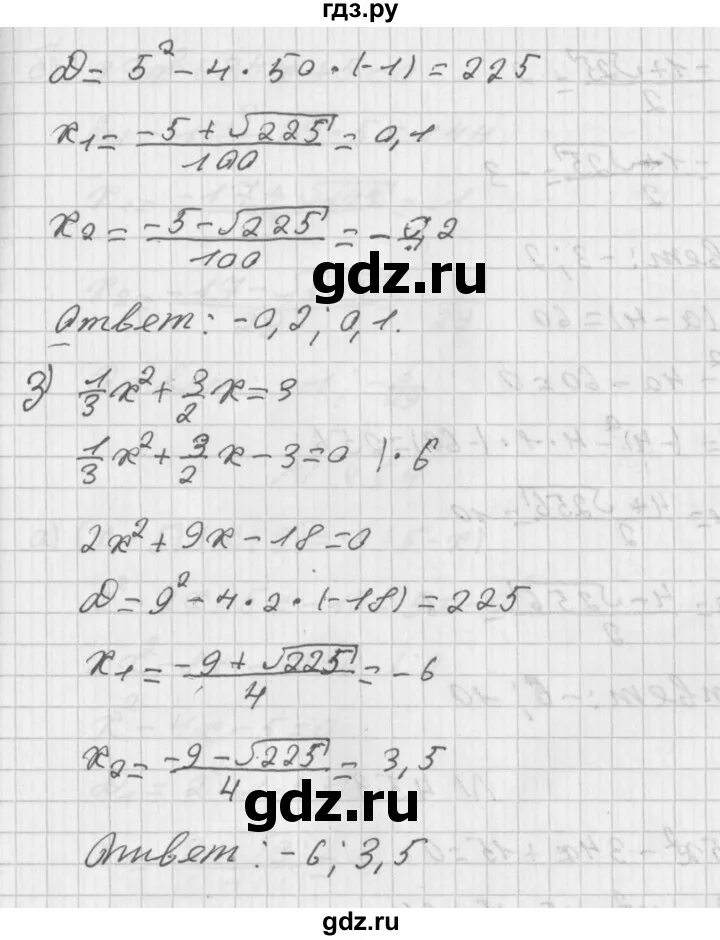 гдз.ру
D = 5² - 4 · 50 · (-1) = 225
x₁ = (-5 + √225)/100 = 0,1
x₂ = (-5 - √225)/100 = -0,2
gdz.ru
Ответ: -0,2; 0,1.
3) 1/3 x² + 3/2 x = 3
1/3 x² + 3/2 x - 3 = 0 | · 6
2x² + 9x - 18 = 0
D = 9² - 4 · 2 · (-18) = 225
x₁ = (-9 + √225)/4 = -6
x₂ = (-9 - √225)/4 = 3,5
gdz.ru
Ответ: -6; 3,5
gdz.ru